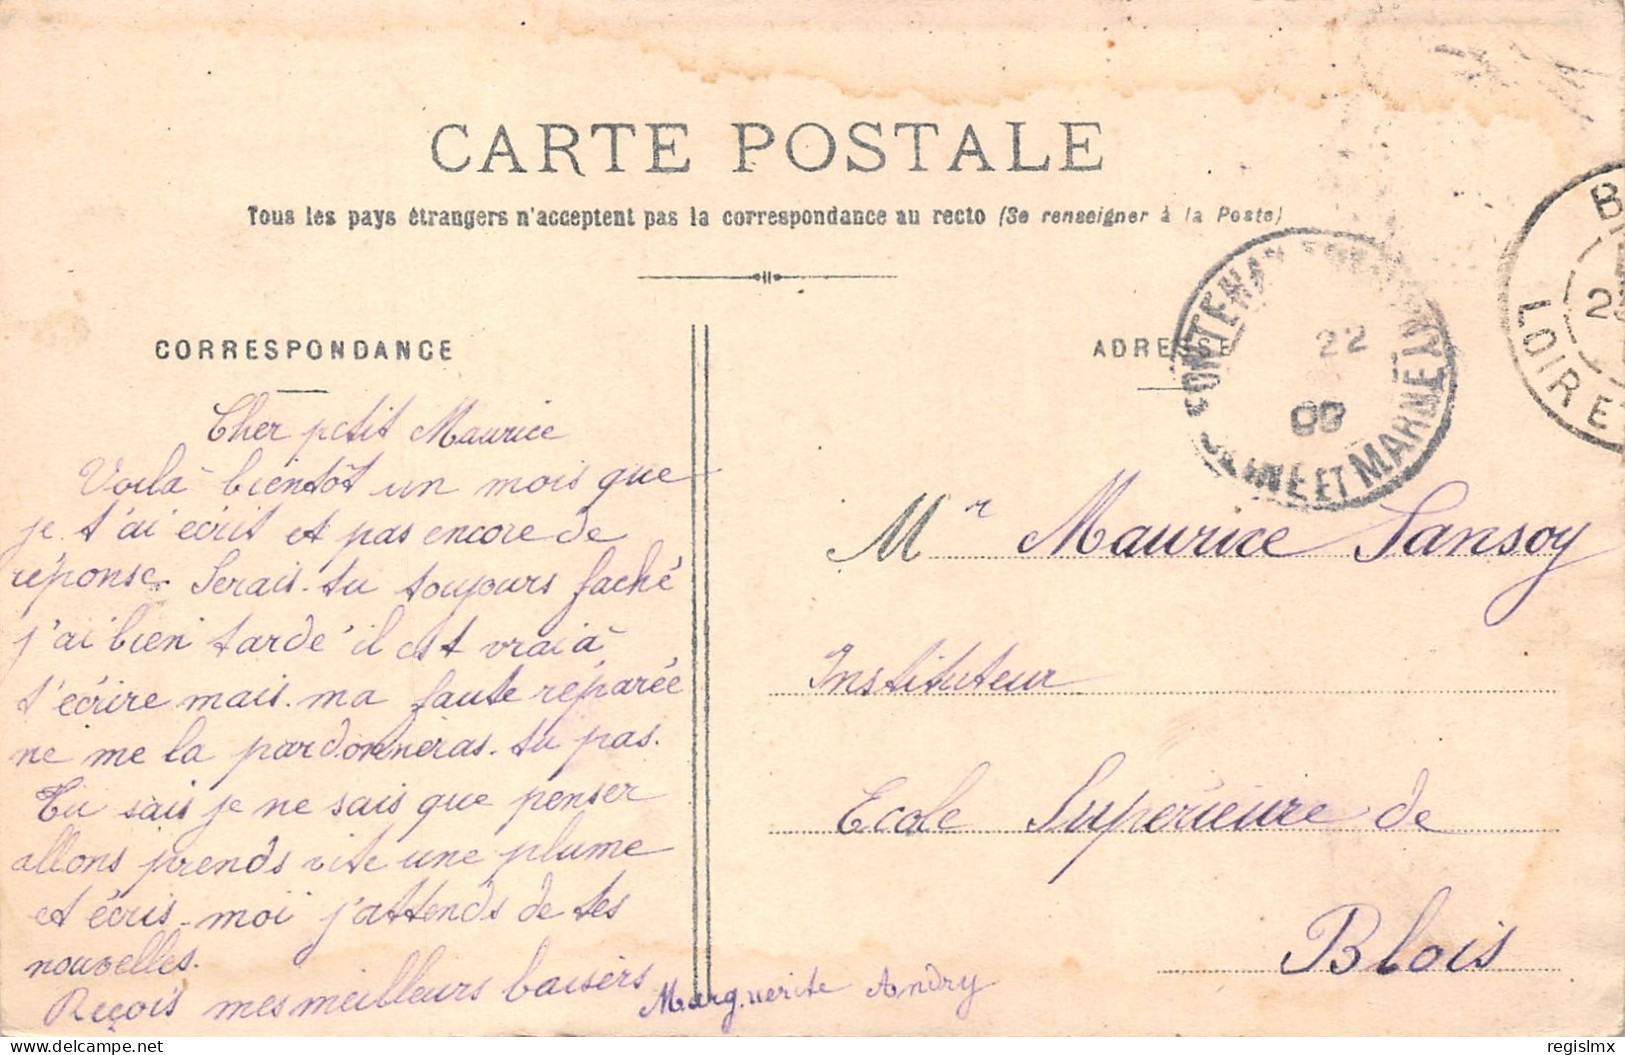 CARTE POSTALE
Tous les pays étrangers n'acceptent pas la correspondance au recto (Se renseigner à la Poste)
CORRESPONDANCE
Cher petit Maurice
Voilà bientôt un mois que
je t'ai écrit et pas encore de
réponse. Serais-tu toujours faché
j'ai bien tardé il est vrai à
t'écrire mais ma faute réparée
ne me la pardonneras-tu pas.
Tu sais je ne sais que penser
allons prends vite une plume
et écris-moi j'attends de tes
nouvelles.
Reçois mes meilleurs baisers
Marguerite Andry
ADRESSE
FONTENAY
22
SEINE ET MARNE
LOIR ET
Mr Maurice Sansoy
Instituteur
Ecole Supérieure de
Blois
delcampe.net
regislmx